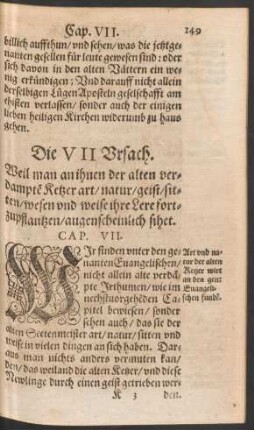 Cap. VII. 149
billich auffthun/ vnd sehen/ was die jetztge-
nanten gesellen für leute gewesen sind: oder
sich davon in den alten Vättern ein we-
nig erkündigen; Vnd darauff nicht allein
derselbigen Lügen Aposteln gesellschafft am
ehisten verlassen/ sonder auch der einigen
lieben heiligen Kirchen widerumb zu haus
gehen.
Die VII Vrsach.
Weil man an ihnen der alten ver-
dampte͂ Ketzer art/ natur/ geist/ sit-
ten/ wesen vnd weise ihre Lere fort-
zupflantzen/ augenscheinlich sihet.
CAP. VII.
WIr finden vnter den ge-
nanten Euangelischen/
nicht allein alte verdā-
pte Irthumen/ wie im
nechstuorgehēden Ca-
pitel bewisen/ sonder
sehen auch/ das sie der
alten Sectenmeister art/ natur/ sitten vnd
weise in vielen dingen an sich haben. Dar-
aus man nichts anders vermuten kan/
den/ das weiland die alten Ketzer/ vnd diese
Newlinge durch einen geist getrieben wer-
Art vnd na-
tur der alten
Ketzer wirt
an den
Euangeli-
schen
K 3 den.